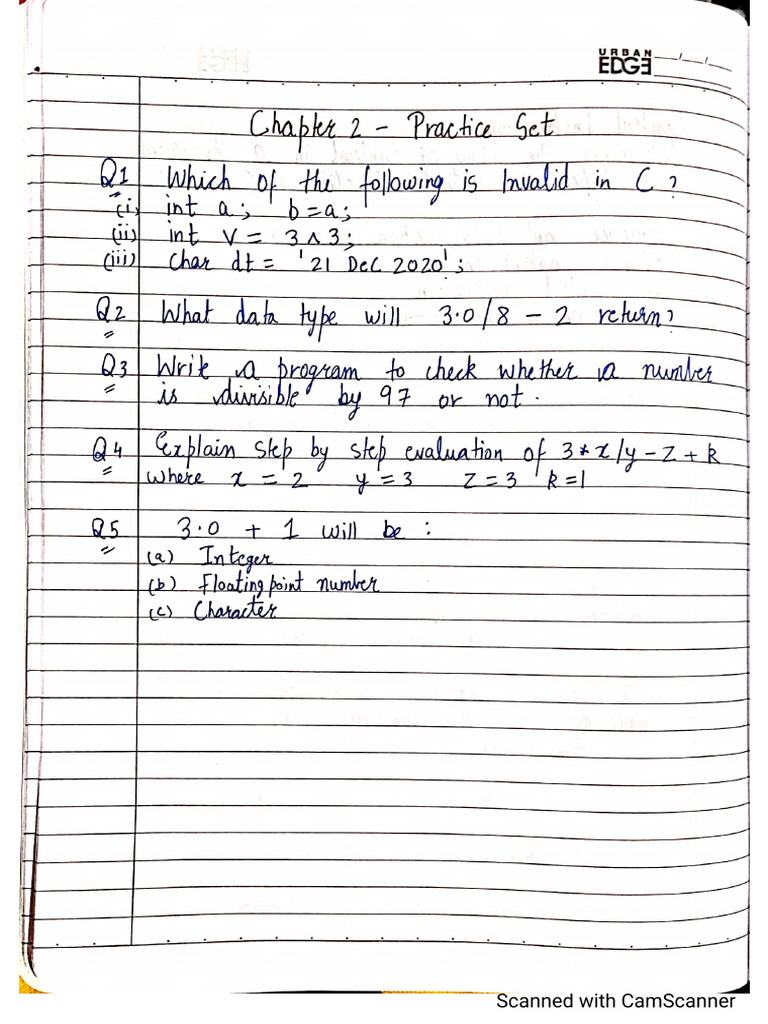 URBAN
EDGE
Chapter 2 - Practice Set
Q1 Which of the following is Invalid in C?
(i) int a; b=a;
(ii) int V = 3 ^ 3;
(iii) Char dt = '21 Dec 2020';
Q2 What data type will 3.0/8 - 2 return?
Q3 Write a program to check whether a number
is divisible by 97 or not.
Q4 Explain step by step evaluation of 3*x/y-z+k
where x = 2 y = 3 z = 3 k = 1
Q5 3.0 + 1 will be :
(a) Integer
(b) Floating point number
(c) Character
Scanned with CamScanner